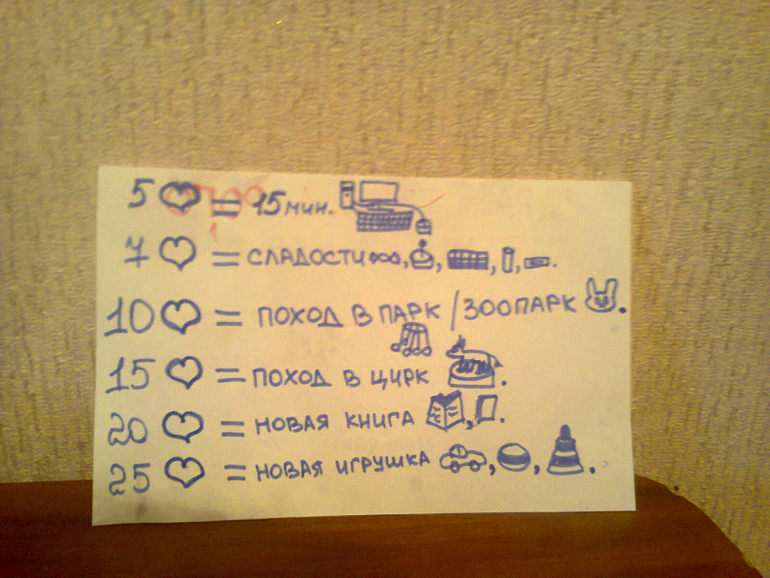 5 = 15 мин.
7 = СЛАДОСТИ , , , .
10 = ПОХОД В ПАРК / ЗООПАРК .
15 = ПОХОД В ЦИРК .
20 = НОВАЯ КНИГА , .
25 = НОВАЯ ИГРУШКА , , .